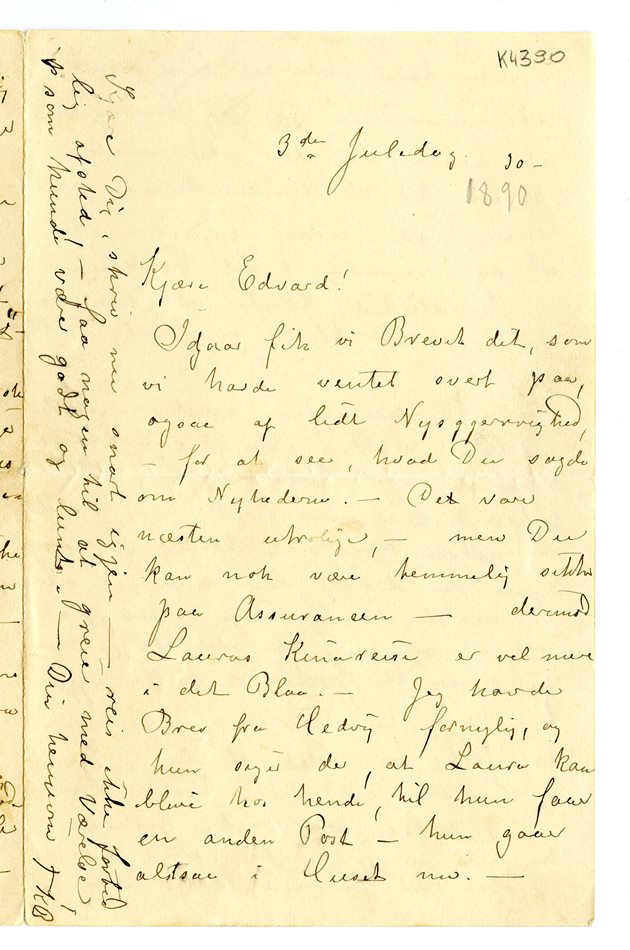 K4390
3die Juledag. 90 -
1890
Kjære Edvard!
Igaar fik vi Brevet dit, som
vi havde ventet svert paa,
ogsaa af lidt Nysggerrighed,
- for at see, hvad Du sagde
om Nyhederne. - Det vare
næsten utrolige, - men Du
kan nok være temmelig sikker
paa Assurancen - derimod
Lauras Kinareise er vel mere
i det Blaa. - Jeg havde
Brev fra Hedvig fornylig, og
hun siger de, at Laura kan
blive hos hende, til hun faar
en anden Post - hun gaar
altsaa i Huset nu. -
Kjære Dig, skriv nu snart igjen - reis ikke forbed
lig afsted! - faa nogen til at greie med Værelse
som kunde være godt og lunt. - Din hengivne KB